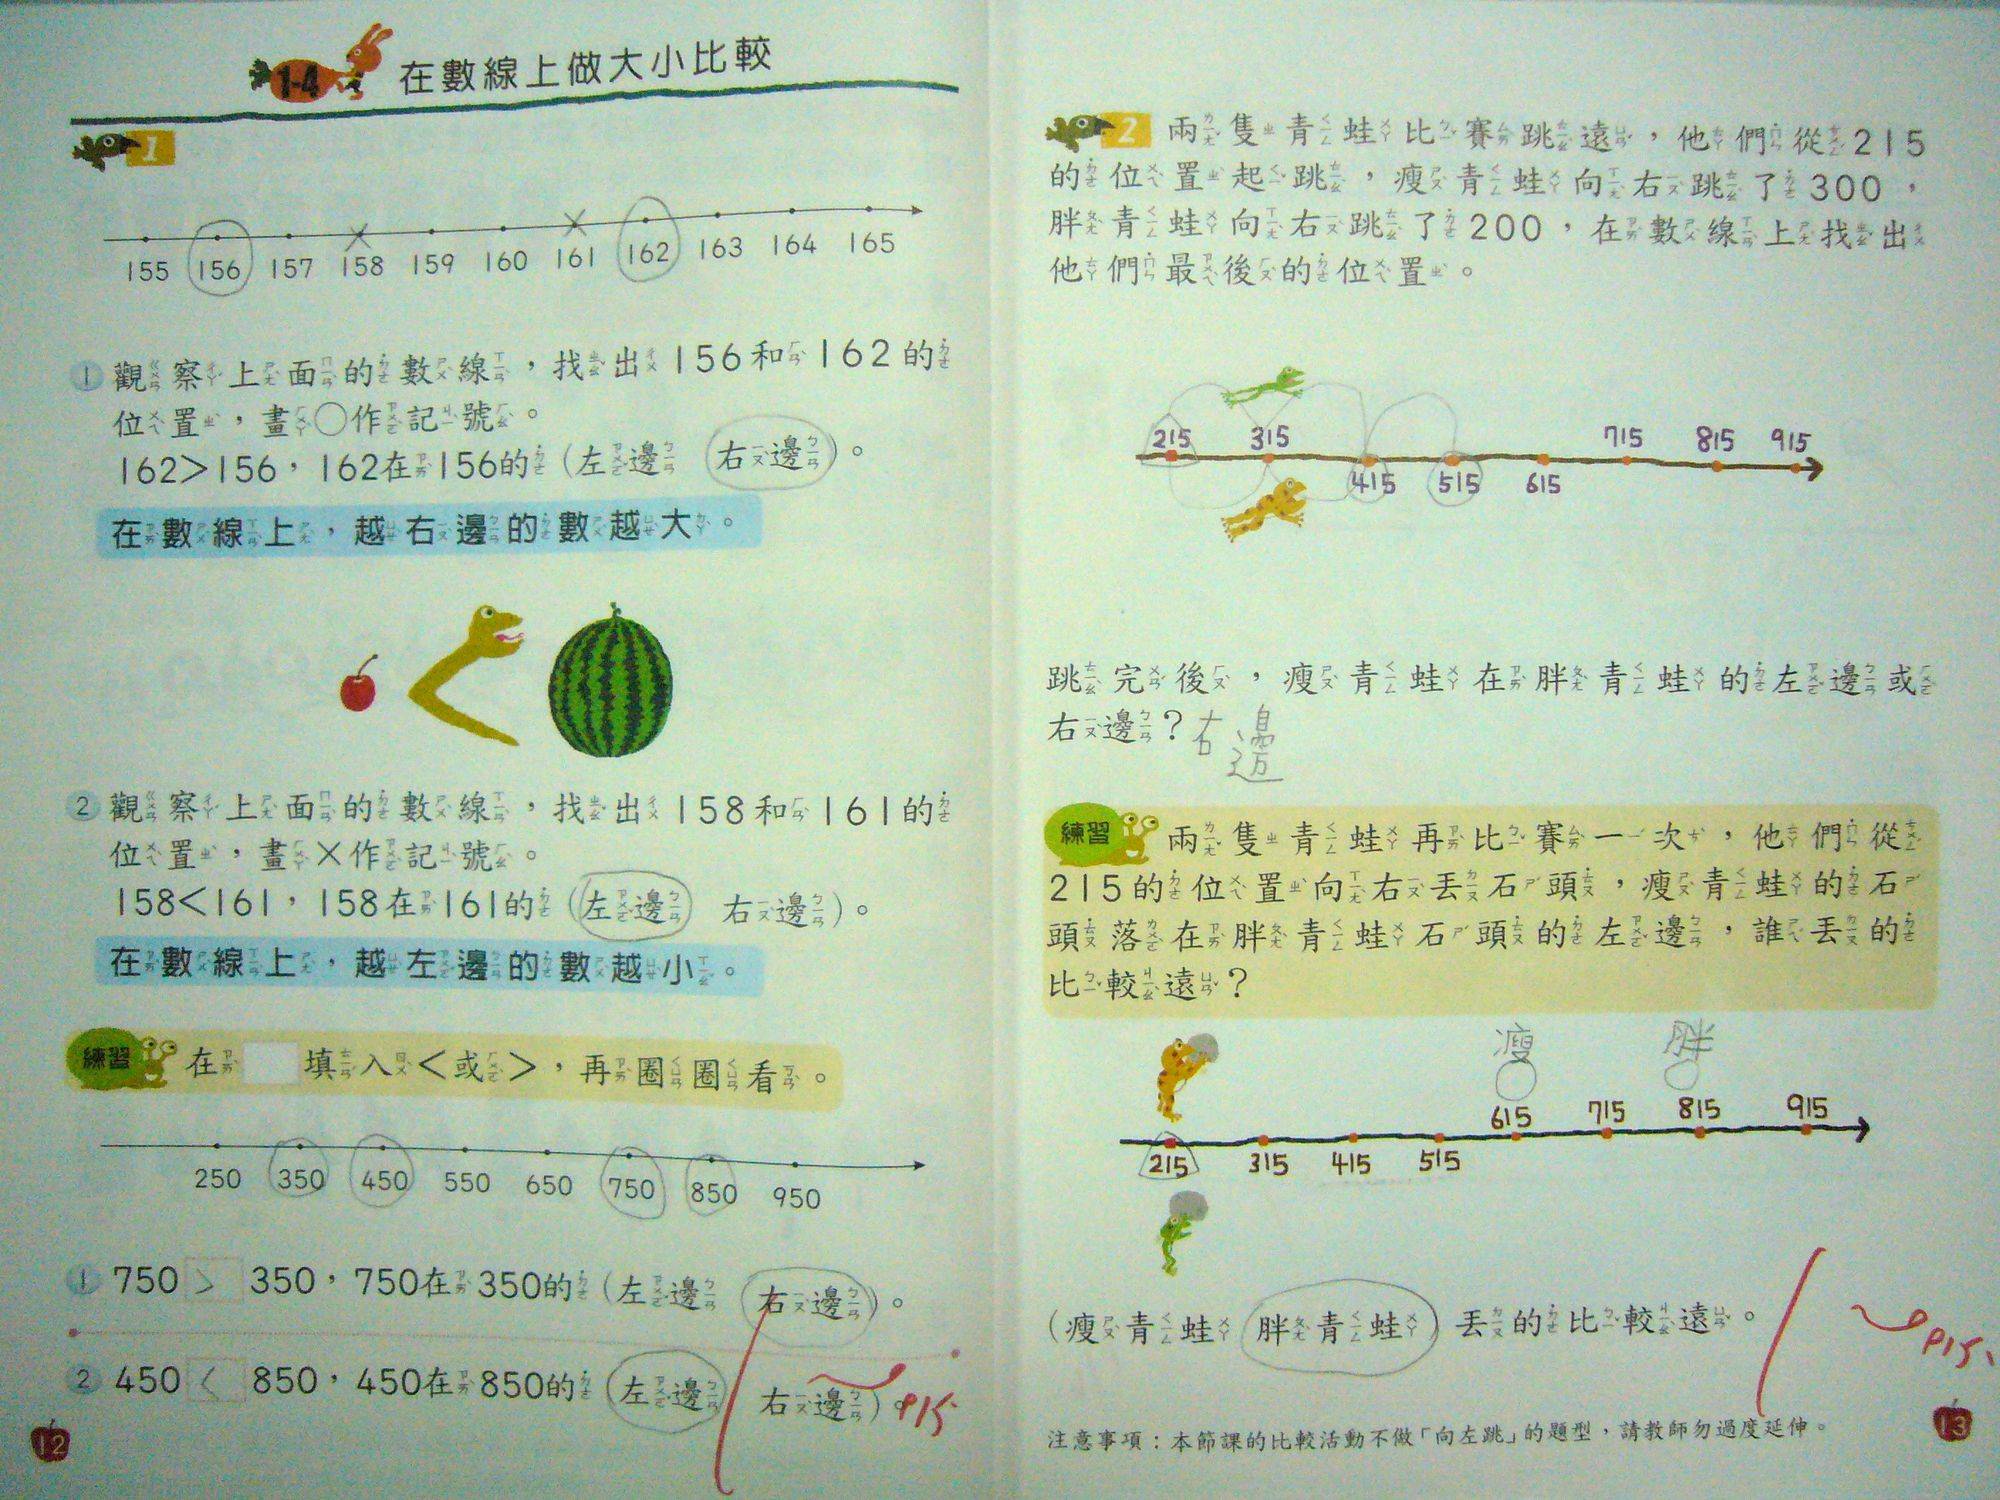 1-4 在數線上做大小比較
1
155 156 157 158 159 160 161 162 163 164 165
1 觀察上面的數線，找出156和162的
位置，畫○作記號。
162>156，162在156的（左邊 右邊）。
在數線上，越右邊的數越大。
2 觀察上面的數線，找出158和161的
位置，畫×作記號。
158<161，158在161的（左邊 右邊）。
在數線上，越左邊的數越小。
練習 在□填入<或>，再圈圈看。
250 350 450 550 650 750 850 950
1 750 > 350，750在350的（左邊 右邊）。
2 450 < 850，450在850的（左邊 右邊）。
12
2 兩隻青蛙比賽跳遠，他們從215
的位置起跳，瘦青蛙向右跳了300，
胖青蛙向右跳了200，在數線上找出
他們最後的位置。
215 315 415 515 615 715 815 915
跳完後，瘦青蛙在胖青蛙的左邊或
右邊？右邊
練習 兩隻青蛙再比賽一次，他們從
215的位置向右丟石頭，瘦青蛙的石
頭落在胖青蛙石頭的左邊，誰丟的
比較遠？
瘦 胖
215 315 415 515 615 715 815 915
（瘦青蛙 胖青蛙）丟的比較遠。
注意事項：本節課的比較活動不做「向左跳」的題型，請教師勿過度延伸。
13